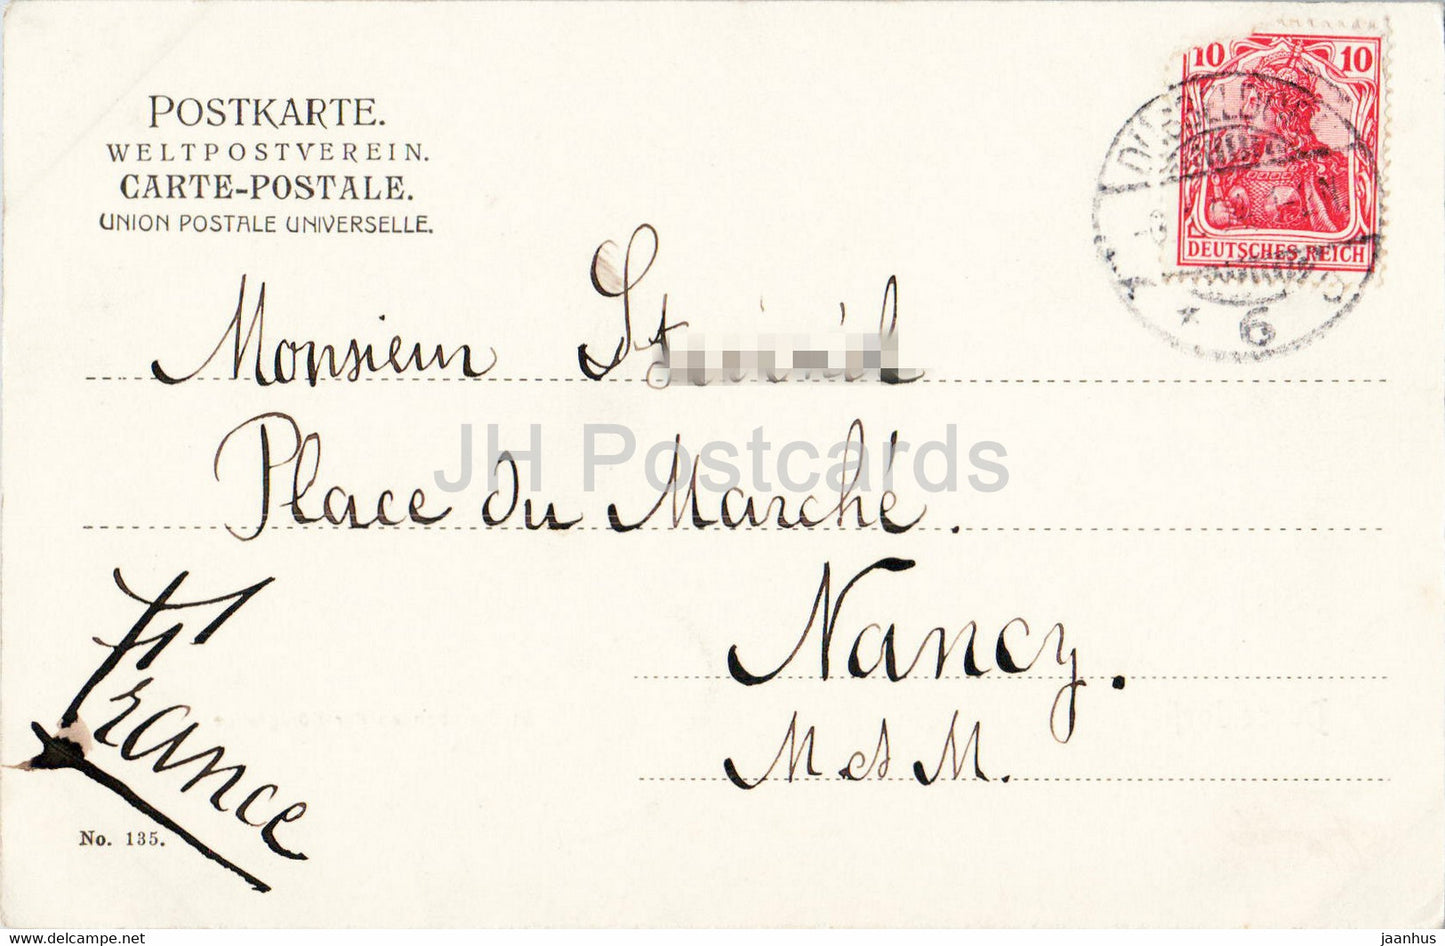 POSTKARTE.
WELTPOSTVEREIN.
CARTE-POSTALE.
UNION POSTALE UNIVERSELLE.
10 10
DEUTSCHES REICH
6
Monsieur
Place du Marché.
Nancy.
M et M.
France
No. 135.
JH Postcards
www.delcampe.net
jaanhus